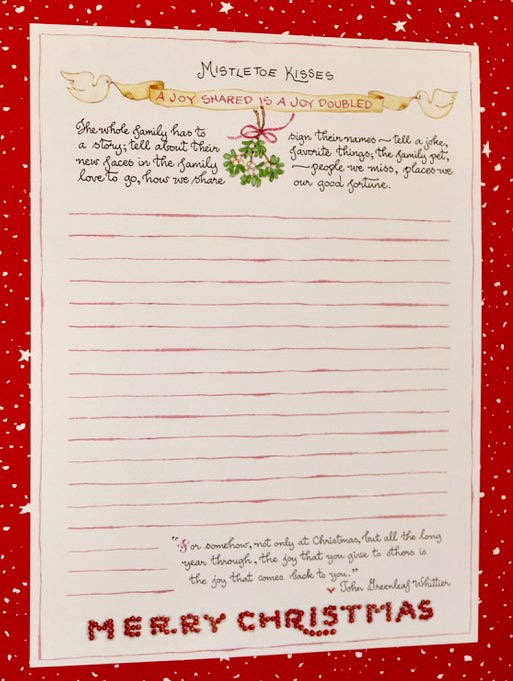 MISTLETOE KISSES
A JOY SHARED IS A JOY DOUBLED
The whole family has to sign their names — tell a joke,
a story; tell about their favorite things, the family pet,
new faces in the family — people we miss, places we
love to go, how we share our good fortune.
"For somehow, not only at Christmas, but all the long
year through, the joy that you give to others is
the joy that comes back to you."
♥ John Greenleaf Whittier
MERRY CHRISTMAS